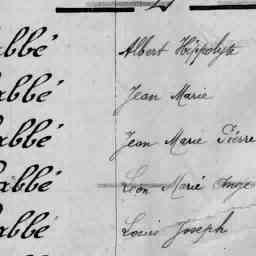 abbé Albert Hippolyte
abbé Jean Marie
abbé Jean Marie Pierre
abbé Léon Marie Ange
abbé Louis Joseph